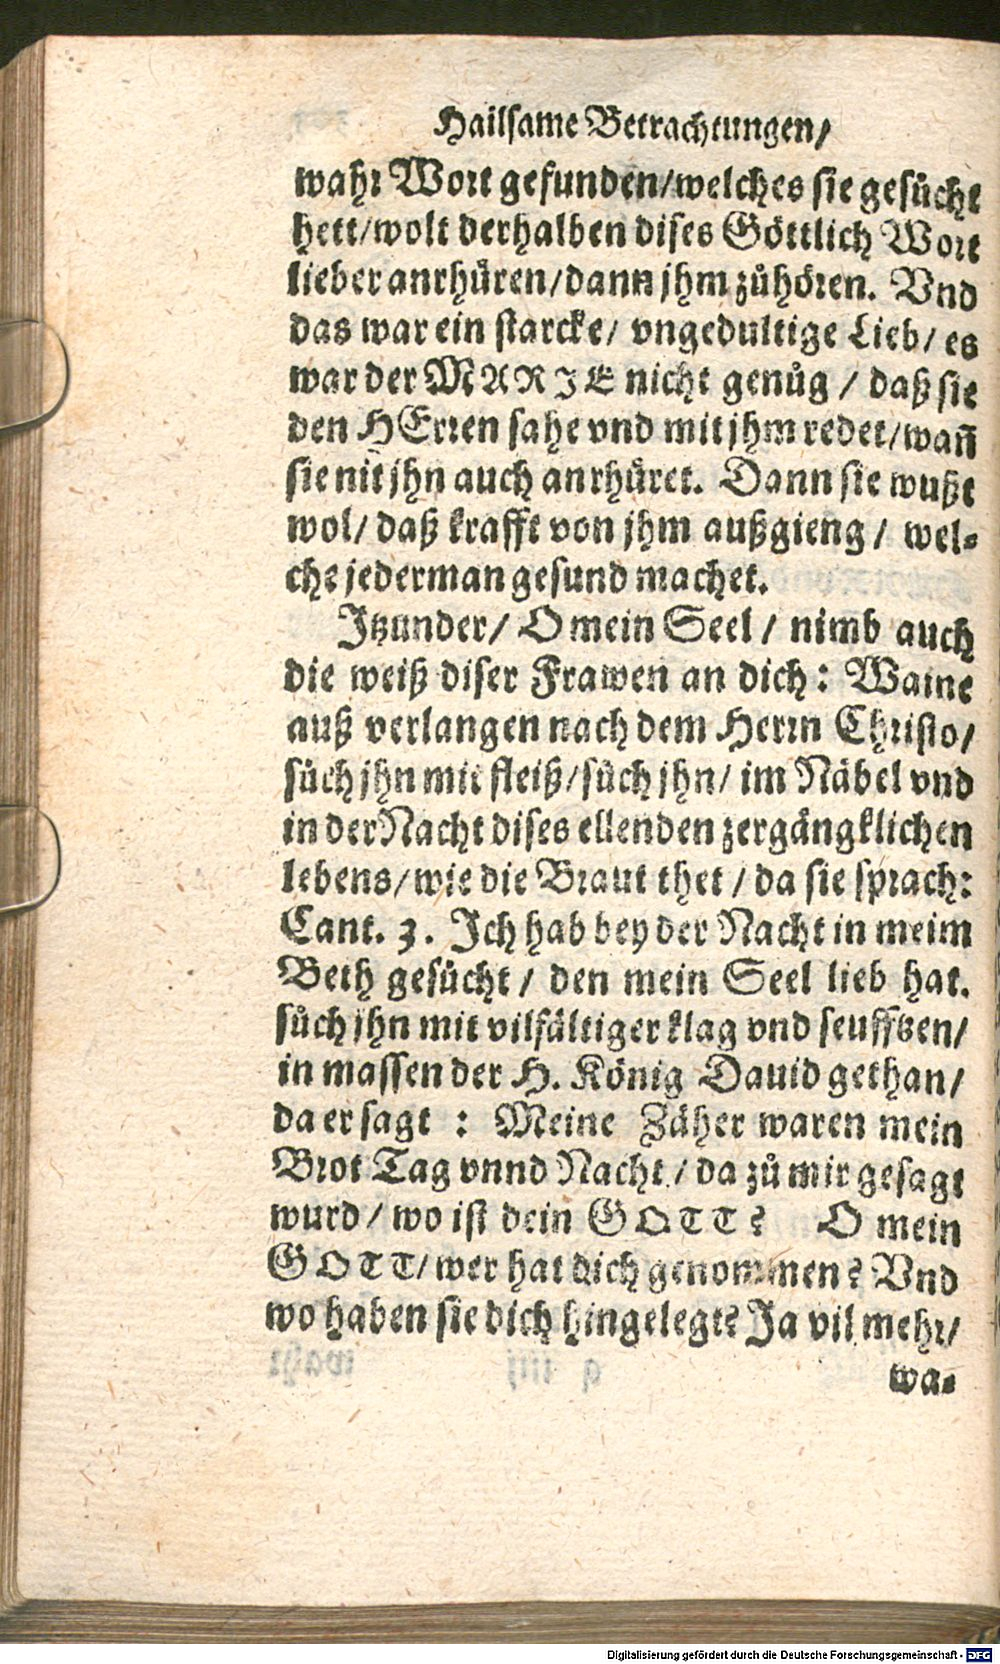 Hailsame Betrachtungen/
wahr Wort gefunden/welches sie gesücht
hett/wolt derhalben dises Göttlich Wort
lieber anrhüren/dann jhm zůhören. Vnd
das war ein starcke/ vngedultige Lieb/ es
war der MARIE nicht genůg / daß sie
den HErren sahe vnd mit jhm redet/wañ
sie nit jhn auch anrhüret. Dann sie wußt
wol/ daß krafft von jhm außgieng / wel-
che jederman gesund machet.
Jtzunder/ O mein Seel / nimb auch
die weiß diser Frawen an dich: Waine
auß verlangen nach dem Herrn Christo/
sůch jhn mit fleiß/sůch jhn/ im Näbel vnd
in der Nacht dises ellenden zergängklichen
lebens/wie die Braut thet / da sie sprach:
Cant. 3. Jch hab bey der Nacht in meim
Beth gesücht / den mein Seel lieb hat.
sůch jhn mit vilfältiger klag vnd seufftzen/
in massen der H. König Dauid gethan/
da er sagt : Meine Zäher waren mein
Brot Tag vnnd Nacht / da zů mir gesagt
wurd/ wo ist dein GOTT? O mein
GOTT/wer hat dich genommen? Vnd
wo haben sie dich hingelegt? Ja vil mehr/
wa-
Digitalisierung gefördert durch die Deutsche Forschungsgemeinschaft - DFG